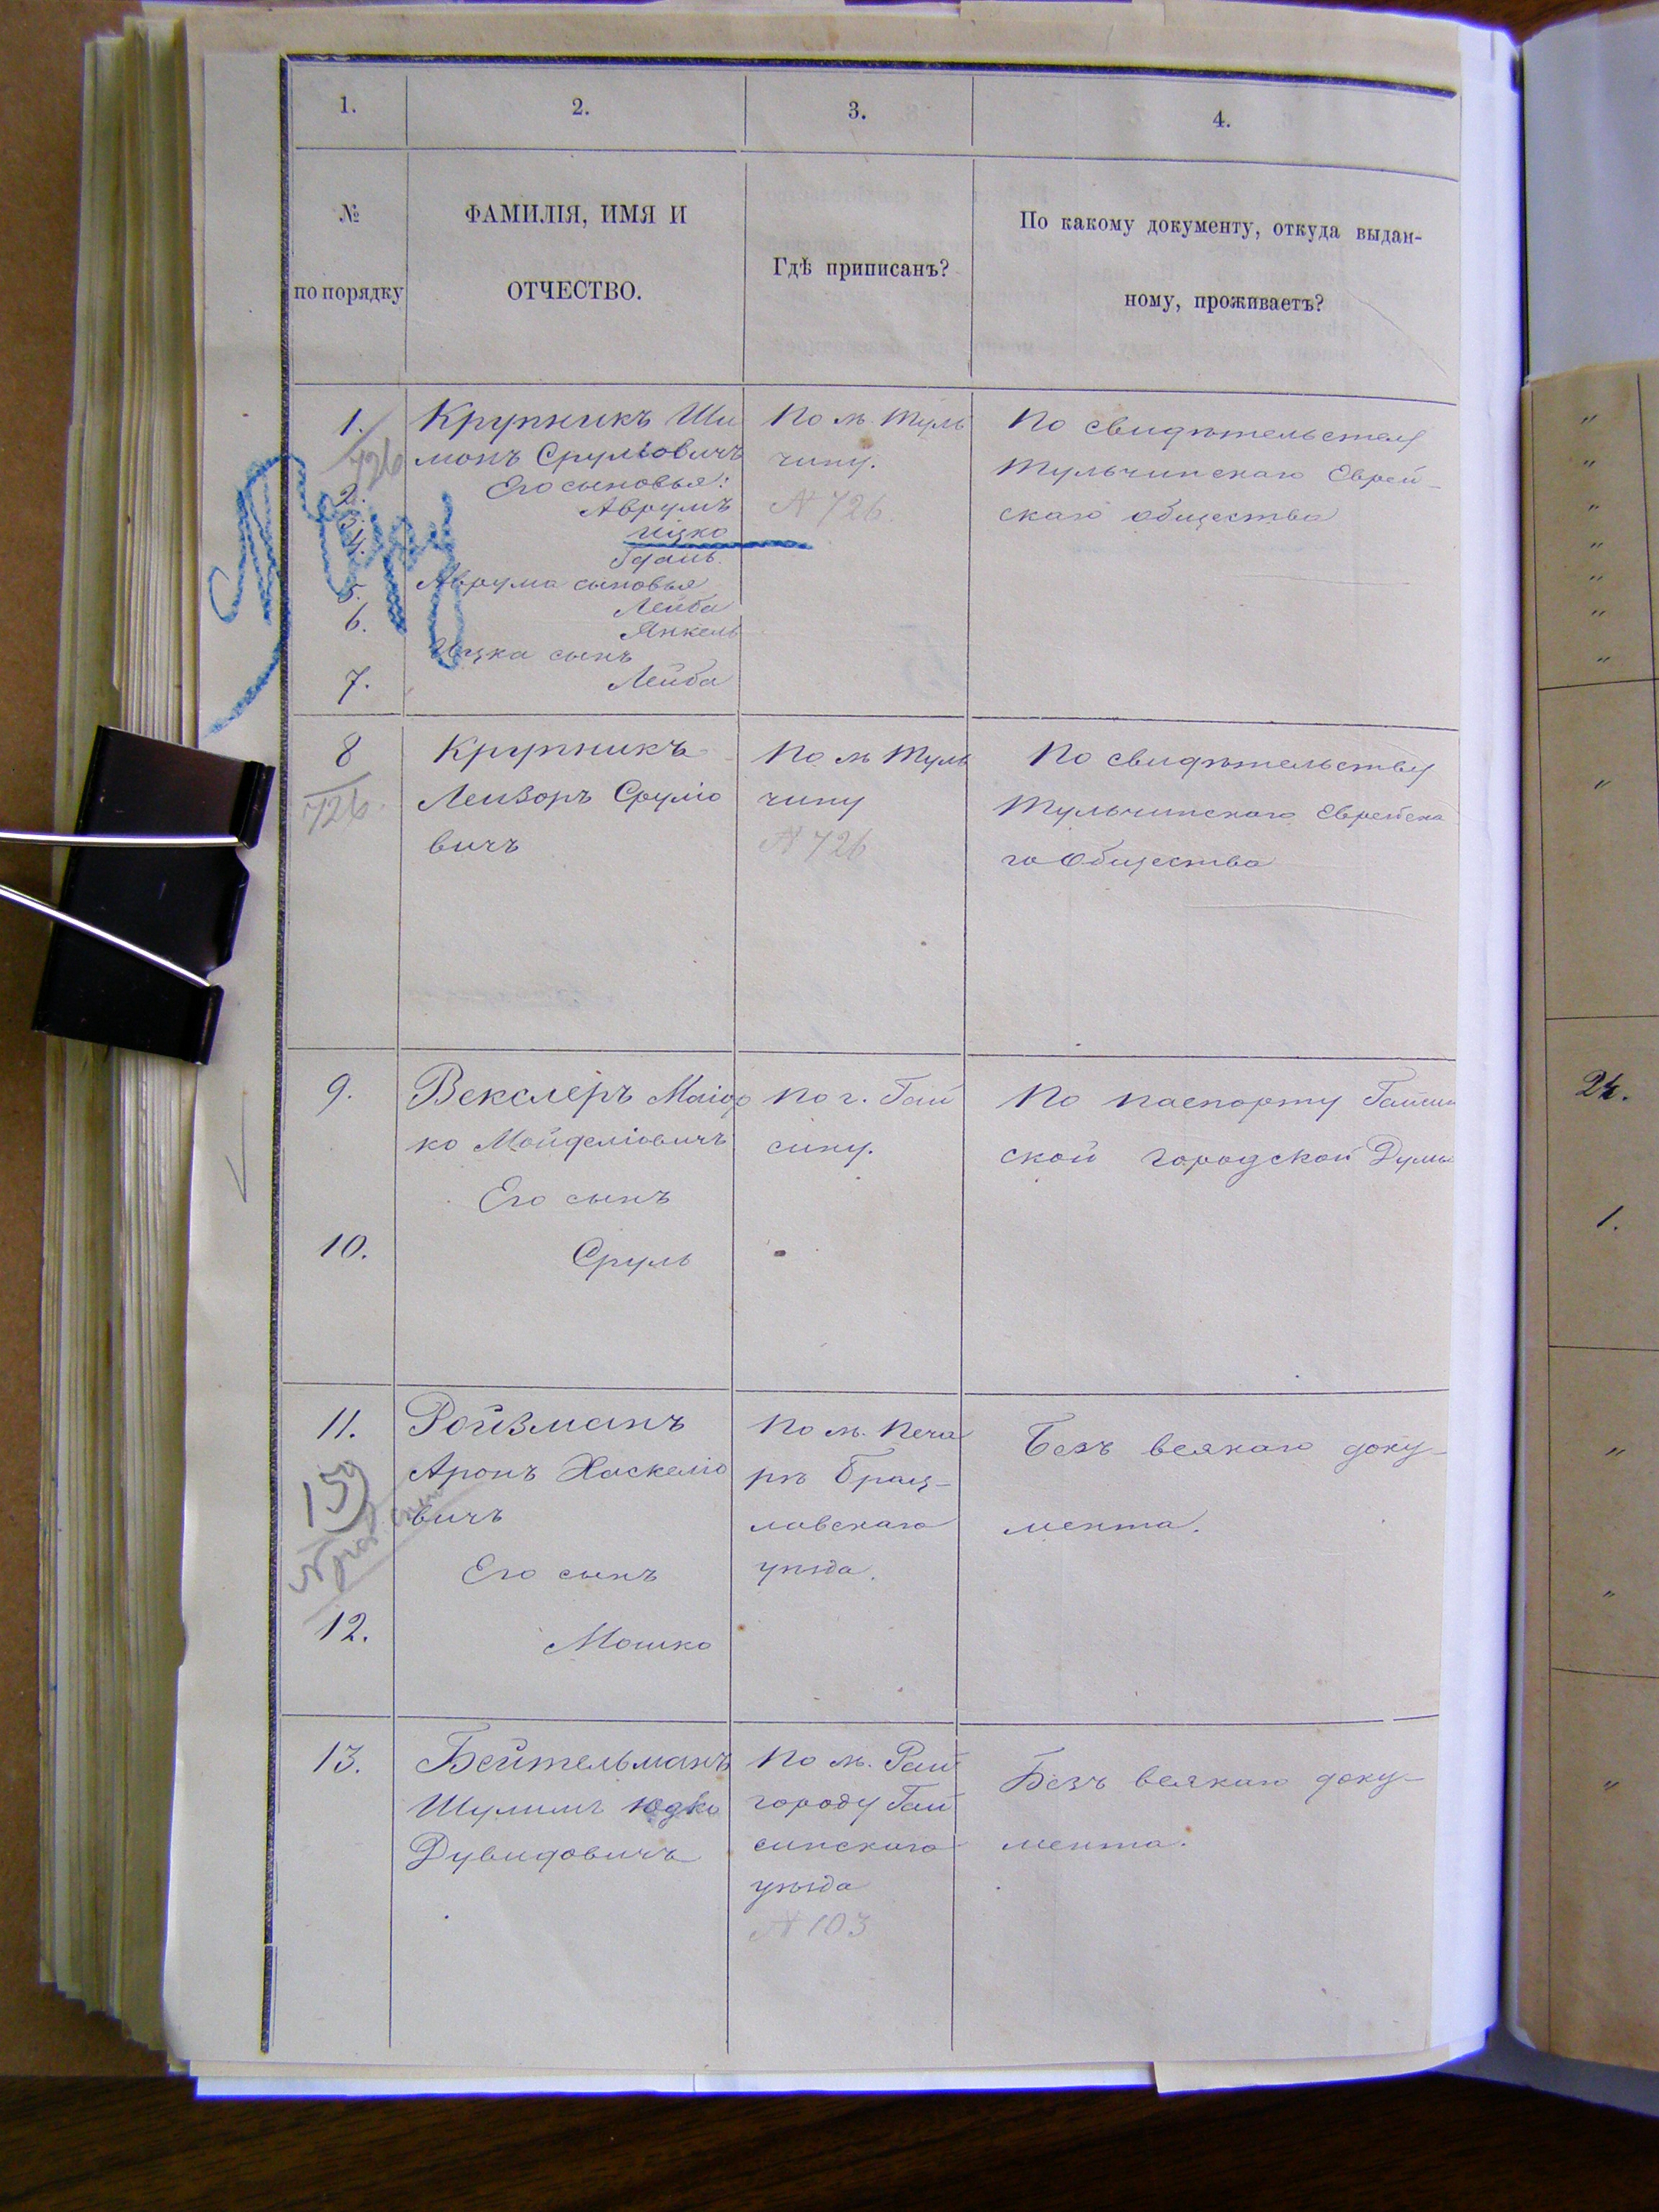 1.
2.
3.
4.
№
по порядку
ФАМИЛІЯ, ИМЯ И
ОТЧЕСТВО.
Гдѣ приписанъ?
По какому документу, откуда выдан-
ному, проживаетъ?
1.
726
2.
3.
4.
5.
6.
7.
Крупникъ Ши
монъ Сруліовичъ
Его сыновья:
Аврумъ
Ицко
Аврума сыновья
Лейба
Янкель
Ицка сынъ
Лейба
По м. Туль
чину.
N 726
По свидѣтельству
Тульчинскаго Еврей-
скаго общества
8
726.
Крупникъ
Лейзоръ Сруліо
вичъ
По м Туль
чину
N 726
По свидѣтельству
Тульчинскаго Еврейска
го Общества
9.
10.
Векслеръ
ко
Его сынъ
Сруль
По г. Гай
сину.
По паспорту Гайсин
ской городской Думы
24.
1.
11.
15
12.
Ройзманъ
Аронъ Хаскеліо
вичъ
Его сынъ
Мошко
По м. Печа
рѣ Брац-
лавскаго
уѣзда.
Безъ всякаго доку-
мента.
13.
Бейтельманъ
Шулимъ Юдко
Дувидовичъ
По м. Рай
городу Гай
синскаго
уѣзда
N 103
Безъ всякаго доку-
мента.